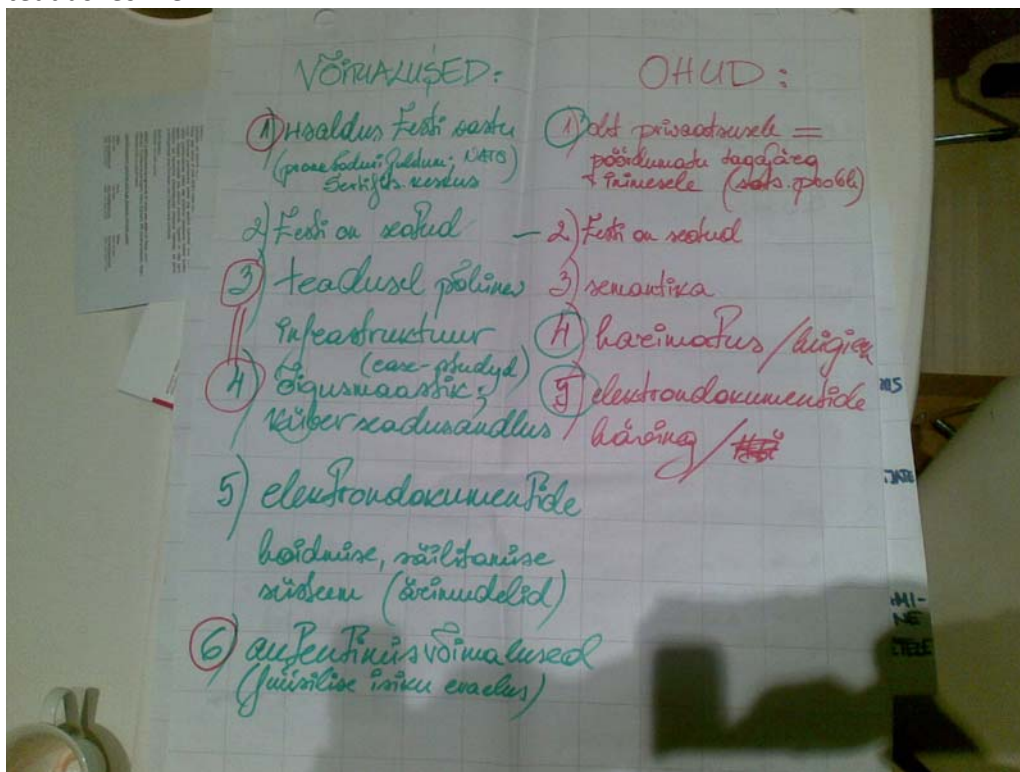 VÕIMALUSED:
1) Usaldus Eesti vastu
NATO
2) Eesti on seotud
3) teadusel põhinev
infrastruktuur
(case-studyd)
4) õigusmaastik;
küber seadusandlus
5) elektrondokumentide
hoidmise, säilitamise
süsteem (ärimudelid)
6) autentimisvõimalused
(füüsilise isiku
OHUD:
1) oht privaatsusele =
pöördumatu tagajärg
inimesele
– 2) Eesti on seotud
3) semantika
4) harimatus /
5) elektrondokumentide
häving /